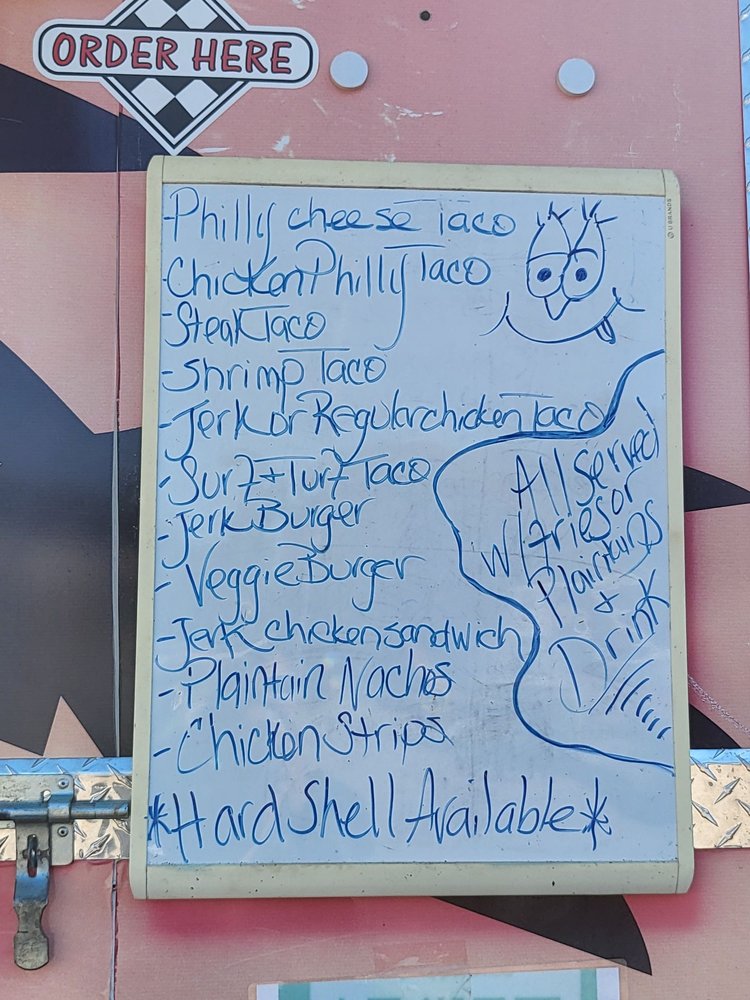 ORDER HERE
U BRANDS
-Philly cheese Taco
-Chicken Philly Taco
-Steak Taco
-Shrimp Taco
-Jerk or Regular chicken Taco
-Surf + Turf Taco
-Jerk Burger
-Veggie Burger
-Jerk chicken sandwich
-Plaintain Nachos
-Chicken Strips
*Hard Shell Available*
All Served
w/ fries or
Plaintains
+
Drink